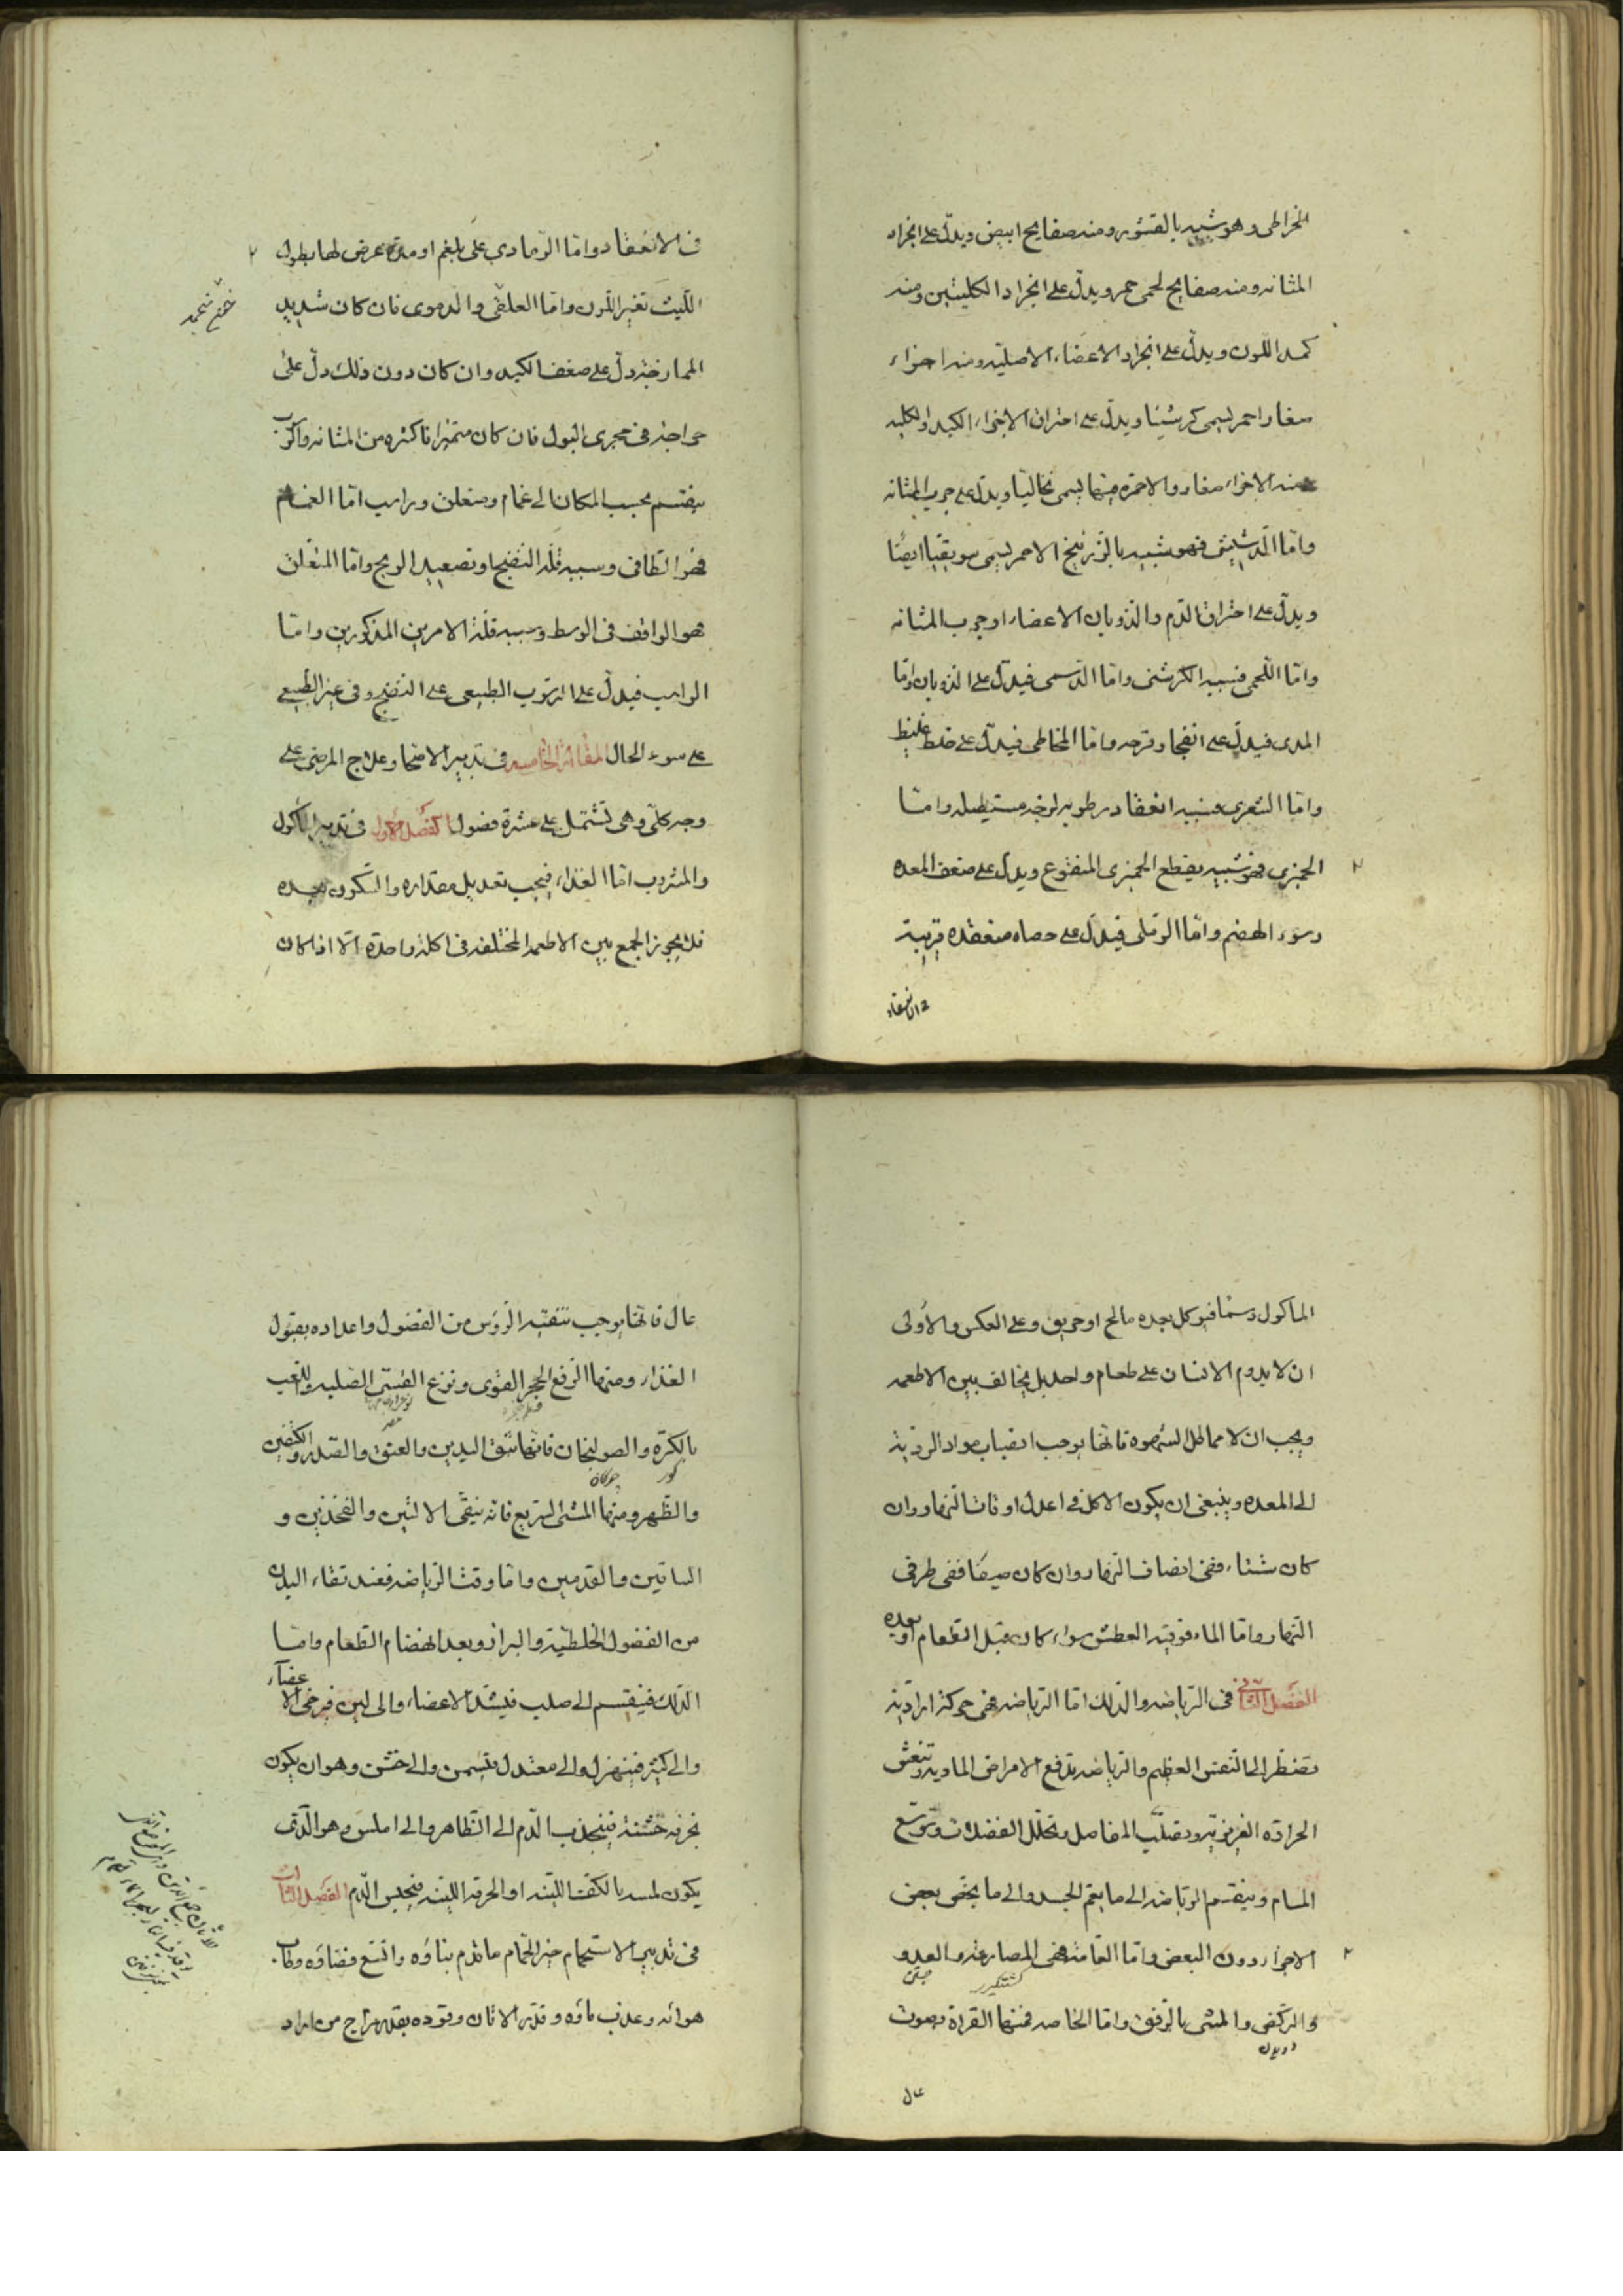 الخراطی وهو شبیه بالقشور ومنه صفایح ابیض ویدل علی انجراد
المثانه ومنه صفایح لحمی حمر ویدل علی انجراد الکلیتین ومنه
کمد اللون ویدل علی انجراد الاعضاء الاصلیه ومنه اجزاء
صغار احمر یسمی کرسنیا ویدل علی احتراق الاجزاء الکبد والکلیه
منه الاجزاء صغار والاحمرة منها یسمی نخالیا ویدل علی جرب المثانه
واما الدشیشی فهو شبیه بالزرنیخ الاحمر یسمی سویقیا ایضا
ویدل علی احتراق الدم والذوبان الاعضاء او جرب المثانه
واما اللحمی فسببه الکرسنی واما الدسمی فیدل علی الذوبان واما
المدی فیدل علی انفجار قرحه واما المخاطی فیدل علی خلط غلیظ
واما الشعری فسببه انعقاد رطوبه لوجه مستطیله واما
الخمیری فهو شبیه بقطع الخمیری المنقوع ویدل علی ضعف المعده
وسوء الهضم واما الرملی فیدل علی حصاه منعقده قریبة
فی الانعقاد
فی الانعقاد واما الرمادی علی بلغم او مدة عرض لها بطول
اللبث تغیر اللون واما العلقی والدموی فان کان شدید
الممازجة دل علی ضعف الکبد وان کان دون ذلک دل علی
جراحة فی مجری البول فان کان متمیزا فاکثره من المثانه والرسوب
ینقسم بحسب المکان الی غمام ومتعلق وراسب اما الغمام
فهو الطافی وسببه قلة النضج او تصعید الریح واما المتعلق
فهو الواقف فی الوسط وسببه قلة الامرین المذکورین واما
الراسب فیدل علی الرسوب الطبیعی علی النضج وفی غیر الطبیعی
علی سوء الحال المقالة الخامسه فی تدبیر الاصحا وعلاج المرضی علی
وجه کلی وهی تشتمل علی عشرة فصول الفصل الاول فی تدبیر المأکول
والمشروب اما الغذاء فیجب تعدیل مقداره والسکون بعده
فلا یجوز الجمع بین الاطعمه المختلفه فی اکلة واحدة الا اذا کان
المأکول دسما فیوکل بعده مالح او حریف وعلی العکس والاولی
ان لا یدوم الانسان علی طعام واحد بل یخالف بین الاطعمه
ویجب ان لا مماطل الشهوه فانها یوجب انصباب مواد الردیة
الی المعده وینبغی ان یکون الاکل فی اعدل اوقات النهار وان
کان شتاء ففی انصاف النهار وان کان صیفا ففی طرفی
النهار واما الماء فوقته العطش سواء کان قبل الطعام او بعده
الفصل الثانی فی الریاضه والدلک اما الریاضه فهی حرکة ارادیة
تضطر الی النفس العظیم والریاضه تدفع الامراض المادیه وتنعش
الحرارة الغریزیه وتصلب المفاصل وتحلل الفضلات وتوسع
المسام وینقسم الریاضه الی ما یعم الجسد والی ما یخص بعض
الاجزاء دون البعض واما العامة فهی المصارعة والعدو
والرکض والمشی بالرفق واما الخاصه فمنها القراة بصوت
دویدن
عال
عال فانها یوجب تنقیة الرؤس من الفضول واعداده بقبول
الغذاء ومنها الرفع الحجر القوی ونزع القسی الصلیبه واللعب
بالکرة والصولجان فانها تنقی الیدین والعنق والصدر والکتفین
چوکان
والظهر ومنها المشی السریع فانه ینقی الالیتین والفخذین و
الساقین والقدمین واما وقت الریاضه فعند نقاء البدن
من الفضول الخلطیة والبراز وبعد انهضام الطعام واما
الدلک فینقسم الی صلب فیشد الاعضاء والی لین فیرخی الاعضآء
والی کثیر فیهزل والی معتدل فیسمن والی خشن وهو ان یکون
بخرقه خشنة فینجذب الدم الی الظاهر والی املس وهو الذی
یکون لمسه بالکف اللینه او الخرقه اللینه فیحبس الدم الفصل الثالث
فی تدبیر الاستحمام خیر الحمام ما قدم بناؤه واتسع فضاؤه وطاب
هوائه وعذب ماؤه وقدر الاتان وقوده بقدر مزاج من اراد